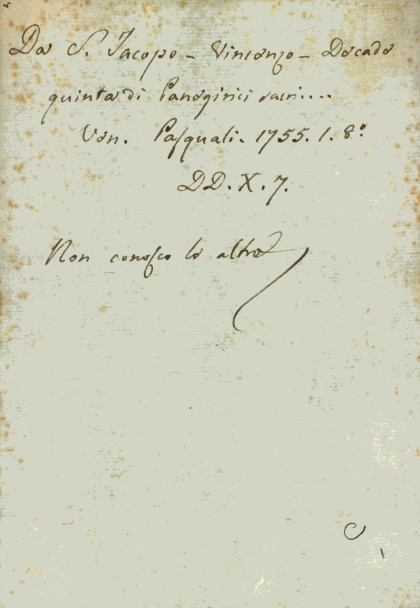 Da S. Jacopo - Vincenzo - Decade
quinta di Panegirici sacri....
Ven. Pasquali. 1755. 1. 8.º
DD. X. 7.
Non conosco le altre